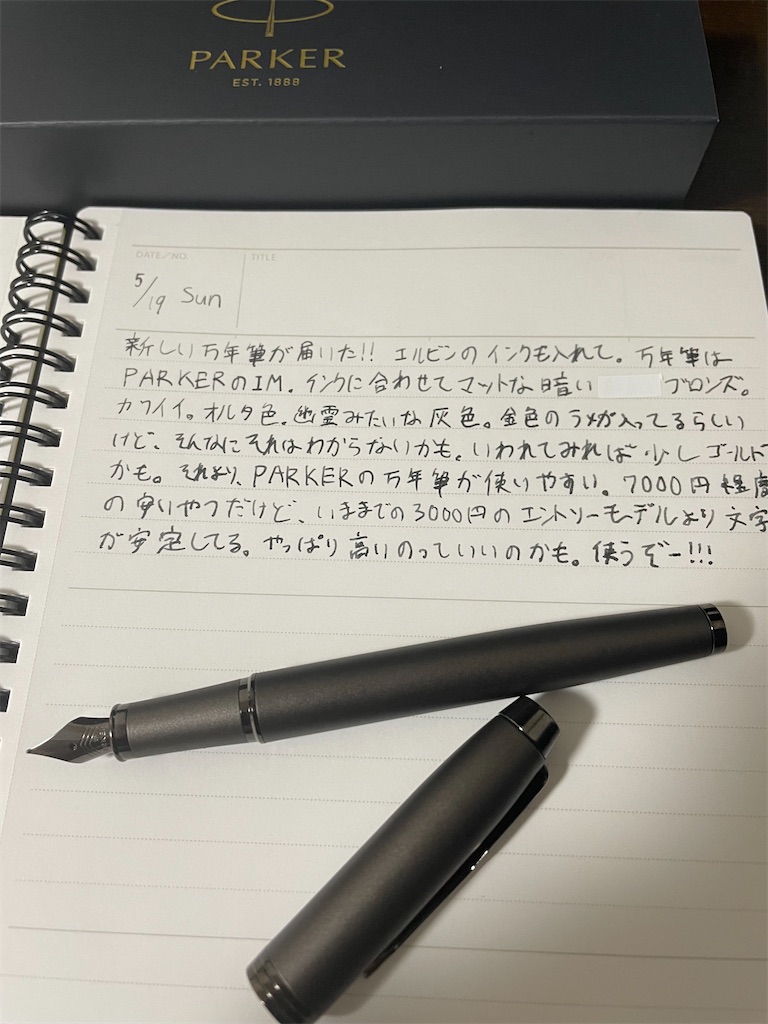 PARKER
EST. 1888
DATE/NO.
TITLE
5/19 Sun
新しい万年筆が届いた!! エルビンのインクも入れて。万年筆は
PARKERのIM. インクに合わせてマットな暗い ブロンズ。
カワイイ。オルタ色。幽霊みたいな灰色。金色のラメが入ってるらしい
けど、そんなにそれはわからないかも。いわれてみれば少しゴールド
かも。それより、PARKERの万年筆が使いやすい。7000円程度
の安いやつだけど、いままでの3000円のエントリーモデルより文字
が安定してる。やっぱり高いのっていいのかも。使うぞー!!!